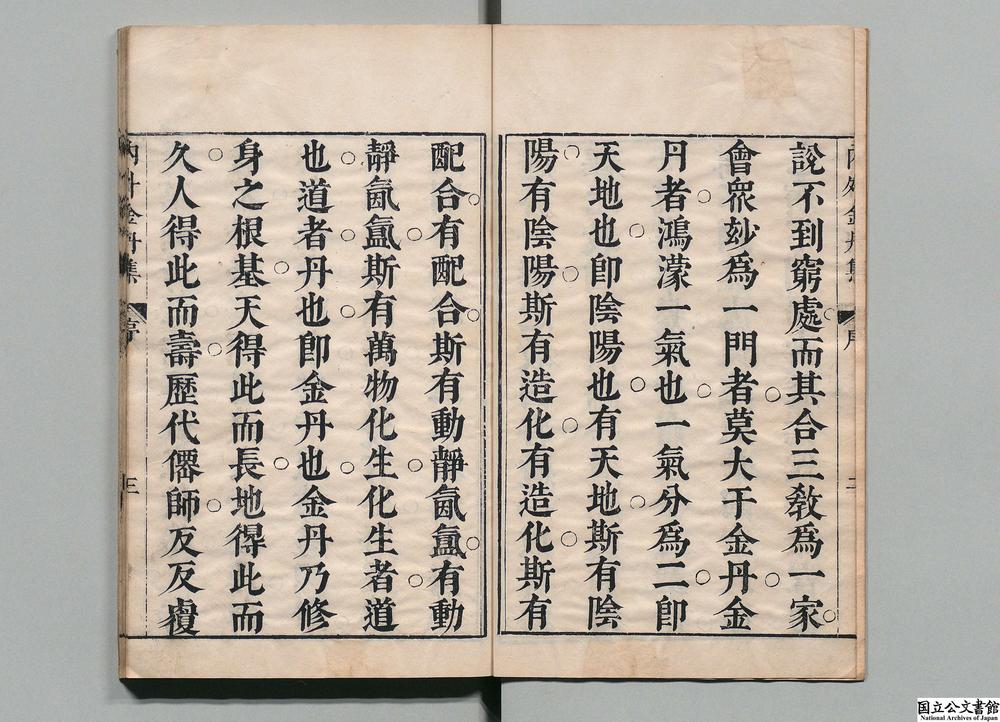 說不到窮處而其合三敎爲一家
會衆妙爲一門者莫大干金丹金
丹者鴻濛一氣也一氣分爲二卽
天地也卽陰陽也有天地斯有陰
陽有陰陽斯有造化有造化斯有
配合有配合斯有動靜氤氳有動
靜氤氳斯有萬物化生化生者道
也道者丹也卽金丹也金丹乃修
身之根基天得此而長地得此而
久人得此而壽歷代僊師反反覆
內外金丹集
序
三
国立公文書館
National Archives of Japan